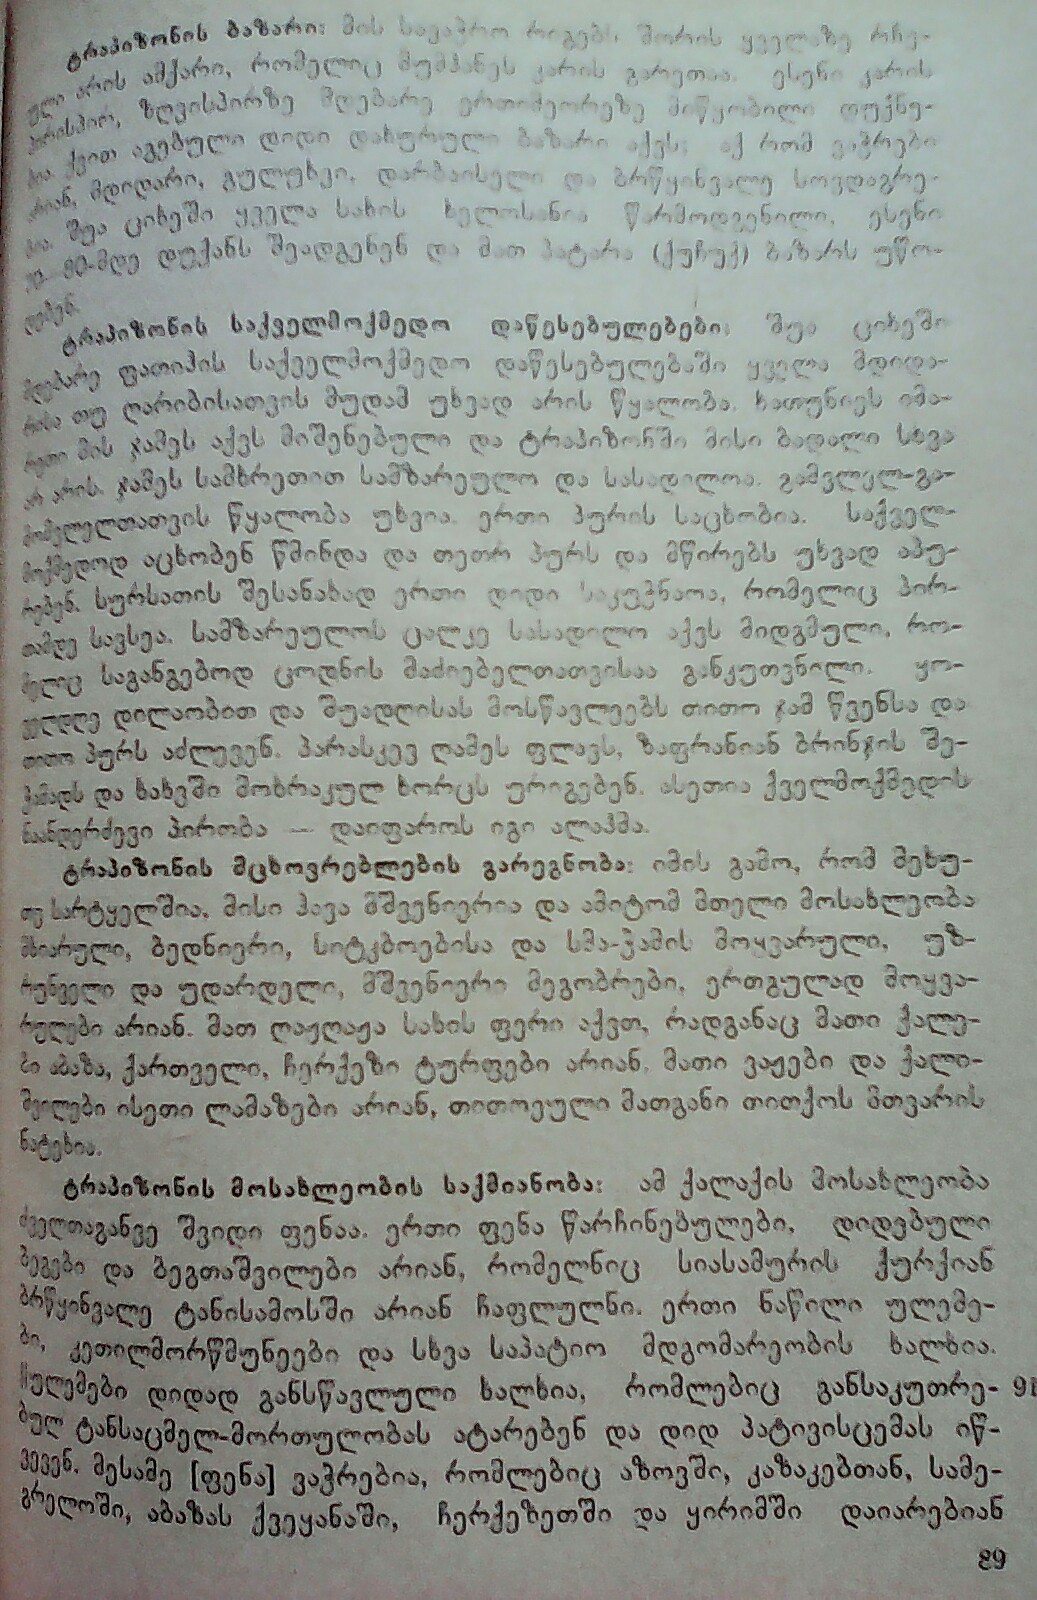 ტრაპიზონის ბაზარი: მის სავაჭრო რიგებს შორის ყველაზე რჩე-
ული არის ამქარი, რომელიც მუმჰანეს კარის გარეთაა. ესენი კარის
პირისპირ, ზღვისპირზე მდებარე ერთიმეორეზე მიწყობილი დუქნე-
ბია. ქვით აგებული დიდი დახურული ბაზარი აქვს; აქ რომ ვაჭრები
არიან, მდიდარი, გულუხვი, დარბაისელი და ბრწყინვალე სოვდაგრე-
ბია. შუა ციხეში ყველა სახის ხელოსანია წარმოდგენილი. ესენი
80-მდე დუქანს შეადგენენ და მათ პატარა (ქუჩუქ) ბაზარს უწო-
დებენ.
ტრაპიზონის საქველმოქმედო დაწესებულებები: შუა ციხეში
მდებარე ფათიჰის საქველმოქმედო დაწესებულებაში ყველა მდიდა-
რისა თუ ღარიბისათვის მუდამ უხვად არის წყალობა. ხათუნიეს იმა-
რეთი მის ჯამეს აქვს მიშენებული და ტრაპიზონში მისი ბადალი სხვა
არ არის. ჯამეს სამხრეთით სამზარეულო და სასადილოა. გამვლელ-გა-
მომვლელთათვის წყალობა უხვია. ერთი პურის საცხობია. საქველ-
მოქმედოდ აცხობენ წმინდა და თეთრ პურს და მწირებს უხვად აპუ-
რებენ. სურსათის შესანახად ერთი დიდი საკუჭნაოა, რომელიც პირ-
თამდე სავსეა. სამზარეულოს ცალკე სასადილო აქვს მიდგმული, რო-
მელიც საგანგებოდ ცოდნის მაძიებელთათვისაა განკუთვნილი. ყო-
ველდღე დილაობით და შუადღისას მოსწავლეებს თითო ჯამ წვენსა და
თითო პურს აძლევენ. პარასკევ ღამეს ფლავს, ზაფრანიან ბრინჯის შე-
ჭამადს და ხახვში მოხრაკულ ხორცს ურიგებენ. ასეთია ქველმოქმედის
ნაანდერძევი პირობა — დაიფაროს იგი ალაჰმა.
ტრაპიზონის მცხოვრებლების გარეგნობა: იმის გამო, რომ მეხუ-
თე სარტყელშია, მისი ჰავა მშვენიერია და ამიტომ მთელი მოსახლეობა
მხიარული, ბედნიერი, სიტკბოებისა და სმა-ჭამის მოყვარული, უზ-
რუნველი და უდარდელი, მშვენიერი მეგობრები, ერთგულად მოყვა-
რულები არიან. მათ ლაჟღაჟა სახის ფერი აქვთ, რადგანაც მათი ქალე-
ბი აბაზა, ქართველი, ჩერქეზი ტურფები არიან. მათი ვაჟები და ქალი-
შვილები ისეთი ლამაზები არიან, თითოეული მათგანი თითქოს მთვარის
ნატეხია.
ტრაპიზონის მოსახლეობის საქმიანობა: ამ ქალაქის მოსახლეობა
ძველთაგანვე შვიდი ფენაა. ერთი ფენა წარჩინებულები, დიდებული
ბეგები და ბეგთაშვილები არიან, რომელნიც სიასამურის ქურქიან
ბრწყინვალე ტანისამოსში არიან ჩაფლულნი. ერთი ნაწილი ულემე-
ბი, კეთილმორწმუნეები და სხვა საპატიო მდგომარეობის ხალხია.
ულემები დიდად განსწავლული ხალხია, რომლებიც განსაკუთრე- 91
ბულ ტანსაცმელ-მორთულობას ატარებენ და დიდ პატივისცემას იწ-
ვევენ. მესამე [ფენა] ვაჭრებია, რომლებიც აზოვში, კაზაკებთან, სამე-
გრელოში, აბაზას ქვეყანაში, ჩერქეზეთში და ყირიმში დაიარებიან
89